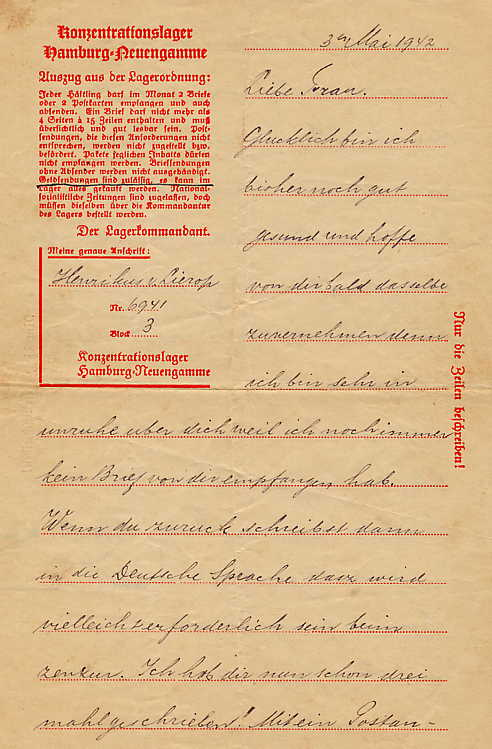 Konzentrationslager
Hamburg-Neuengamme
Auszug aus der Lagerordnung:
Jeder Häftling darf im Monat 2 Briefe
oder 2 Postkarten empfangen und auch
absenden. Ein Brief darf nicht mehr als
4 Seiten à 15 Zeilen enthalten und muß
übersichtlich und gut lesbar sein. Post-
sendungen, die diesen Anforderungen nicht
entsprechen, werden nicht zugestellt bzw.
befördert. Pakete jeglichen Inhalts dürfen
nicht empfangen werden. Briefsendungen
ohne Absender werden nicht ausgehändigt.
Geldsendungen sind zulässig, es kann im
Lager alles gekauft werden. National-
sozialistische Zeitungen sind zugelassen, doch
müssen dieselben über die Kommandantur
des Lagers bestellt werden.
Der Lagerkommandant.
Meine genaue Anschrift:
Henrikus v Lierop
Nr. 6941
Block 3
Konzentrationslager
Hamburg-Neuengamme
Nur die Zeilen beschreiben!
3en Mai 1942
Liebe
Glucklich bin ich
bisher noch gut
gesund und hoffe
von dir bald dasselbe
zuvernehmen denn
ich bin sehr in
unruhe uber dich weil ich noch immer
kein Brief von dir empfangen hab.
Wenn du zuruck schreibst dann
in die Deutsche Sprache dasz wird
vielleicht erforderlich sein beim
zenzur. Ich hab dir nun schon drei
mahl geschrieben! Mit ein Postan-